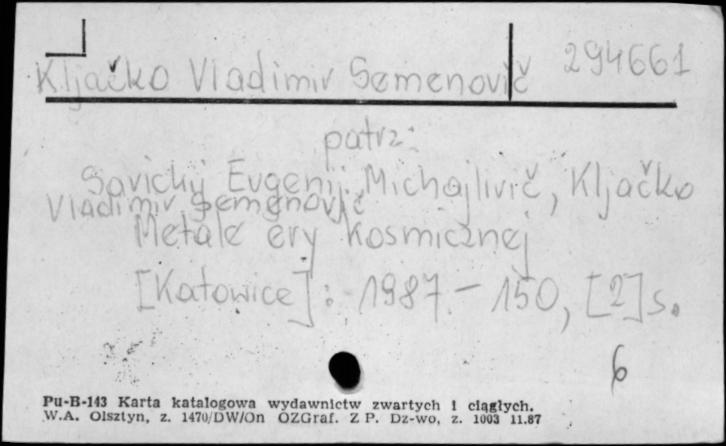 Kljačko Vladimir Semenovič 294661
patrz:
Savickij Evgenij Michajlivič, Kljačko
Vladimir Semenovič
Metale ery kosmicznej
[Katowice] : 1987 - 150, [2] s.
6
Pu-B-143 Karta katalogowa wydawnictw zwartych i ciągłych.
W.A. Olsztyn, z. 1470/DW/On OZGraf. Z P. Dz-wo, z. 1003 11.87